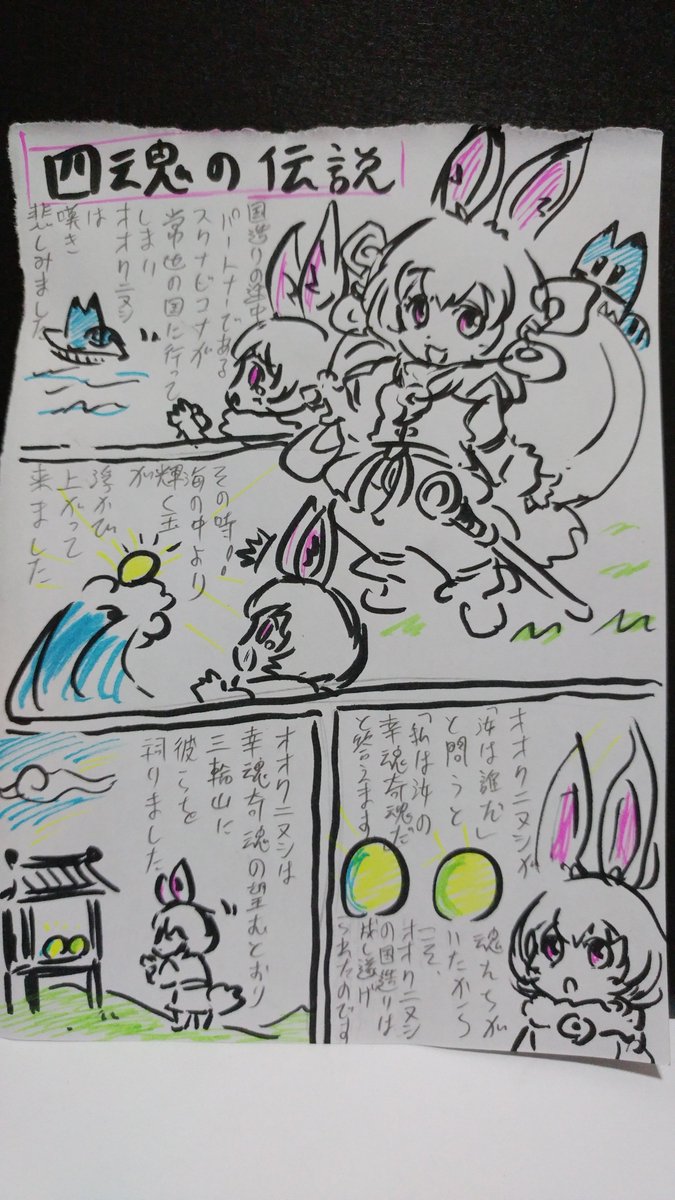 四魂の伝説
国造りの途中、
パートナーである
スクナビコナが
常世の国に行って
しまい
オオクニヌシ
は
嘆き
悲しみました
その時!!
海の中より
輝く玉
が
浮かび
上がって
来ました
オオクニヌシが
「汝は誰だ」
と問うと
「私は汝の
幸魂奇魂だ」
と答えます
魂たちが
いたから
こそ、
オオクニヌシ
の国造りは
成し遂げ
られたのです
オオクニヌシは
幸魂奇魂の望むとおり
三輪山に
彼らを
祠りました